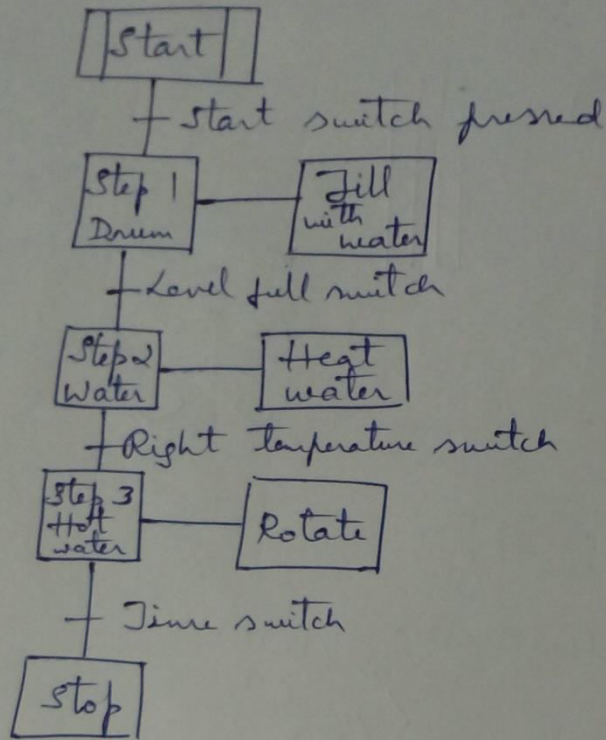 Start
Start switch pressed
Step 1
Drum
Fill
with
water
Level full switch
Step 2
Water
Heat
water
Right temperature switch
Step 3
Hot
water
Rotate
Time switch
Stop